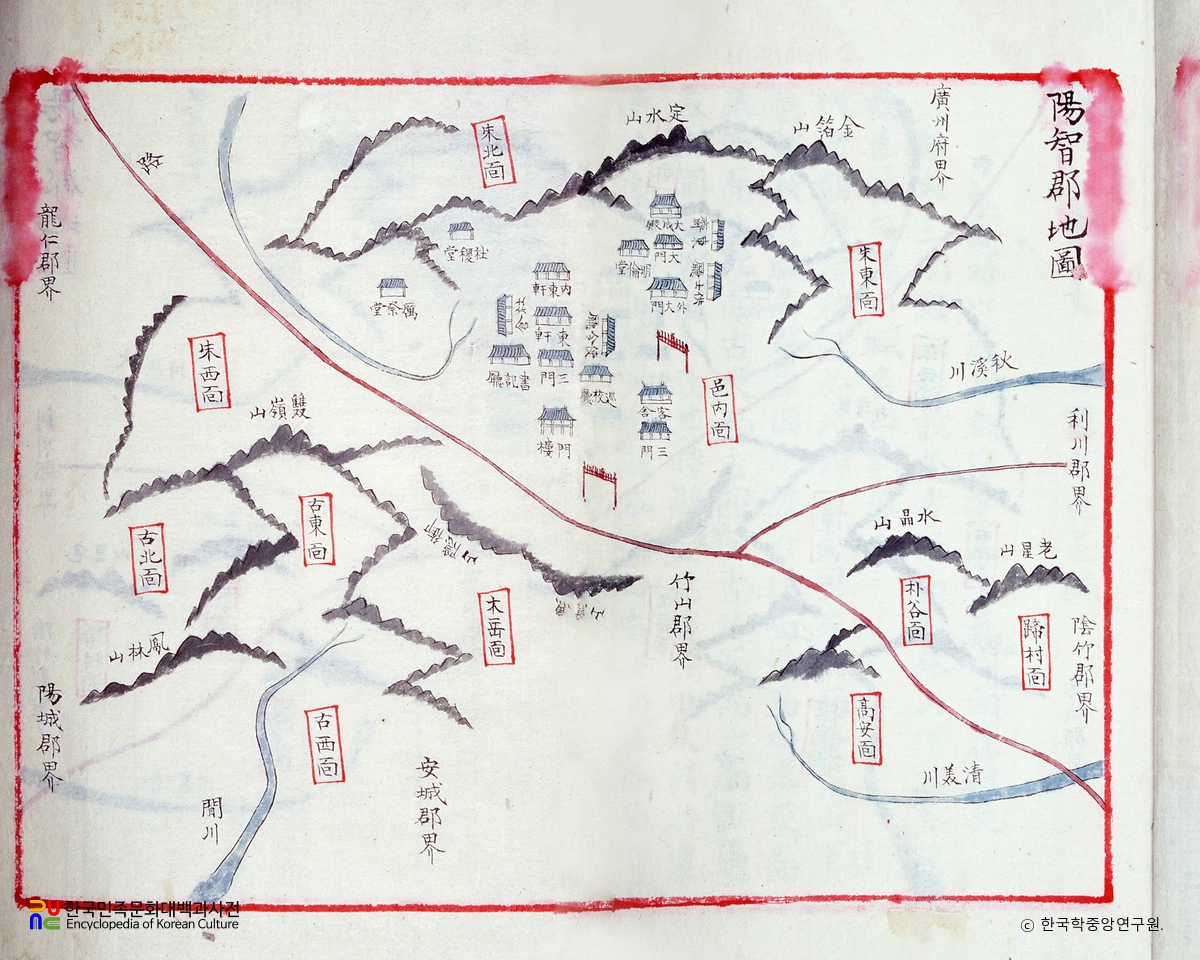 陽智郡地圖
廣州府界
金箔山
定水山
朱北面
路
龍仁郡界
朱東面
秋溪川
利川郡界
大成殿
大門
明倫堂
外大門
社稷堂
厲祭堂
內東軒
東軒
三門
書記廳
巡校廳
門樓
客舍
三門
邑內面
朱西面
雙嶺山
古東面
古北面
御隱山
水晶山
老星山
朴谷面
蹄村面
陰竹郡界
竹山郡界
木岳面
鳳林山
陽城郡界
古西面
閒川
安城郡界
高安面
清美川
한국민족문화대백과사전
Encyclopedia of Korean Culture
ⓒ 한국학중앙연구원.